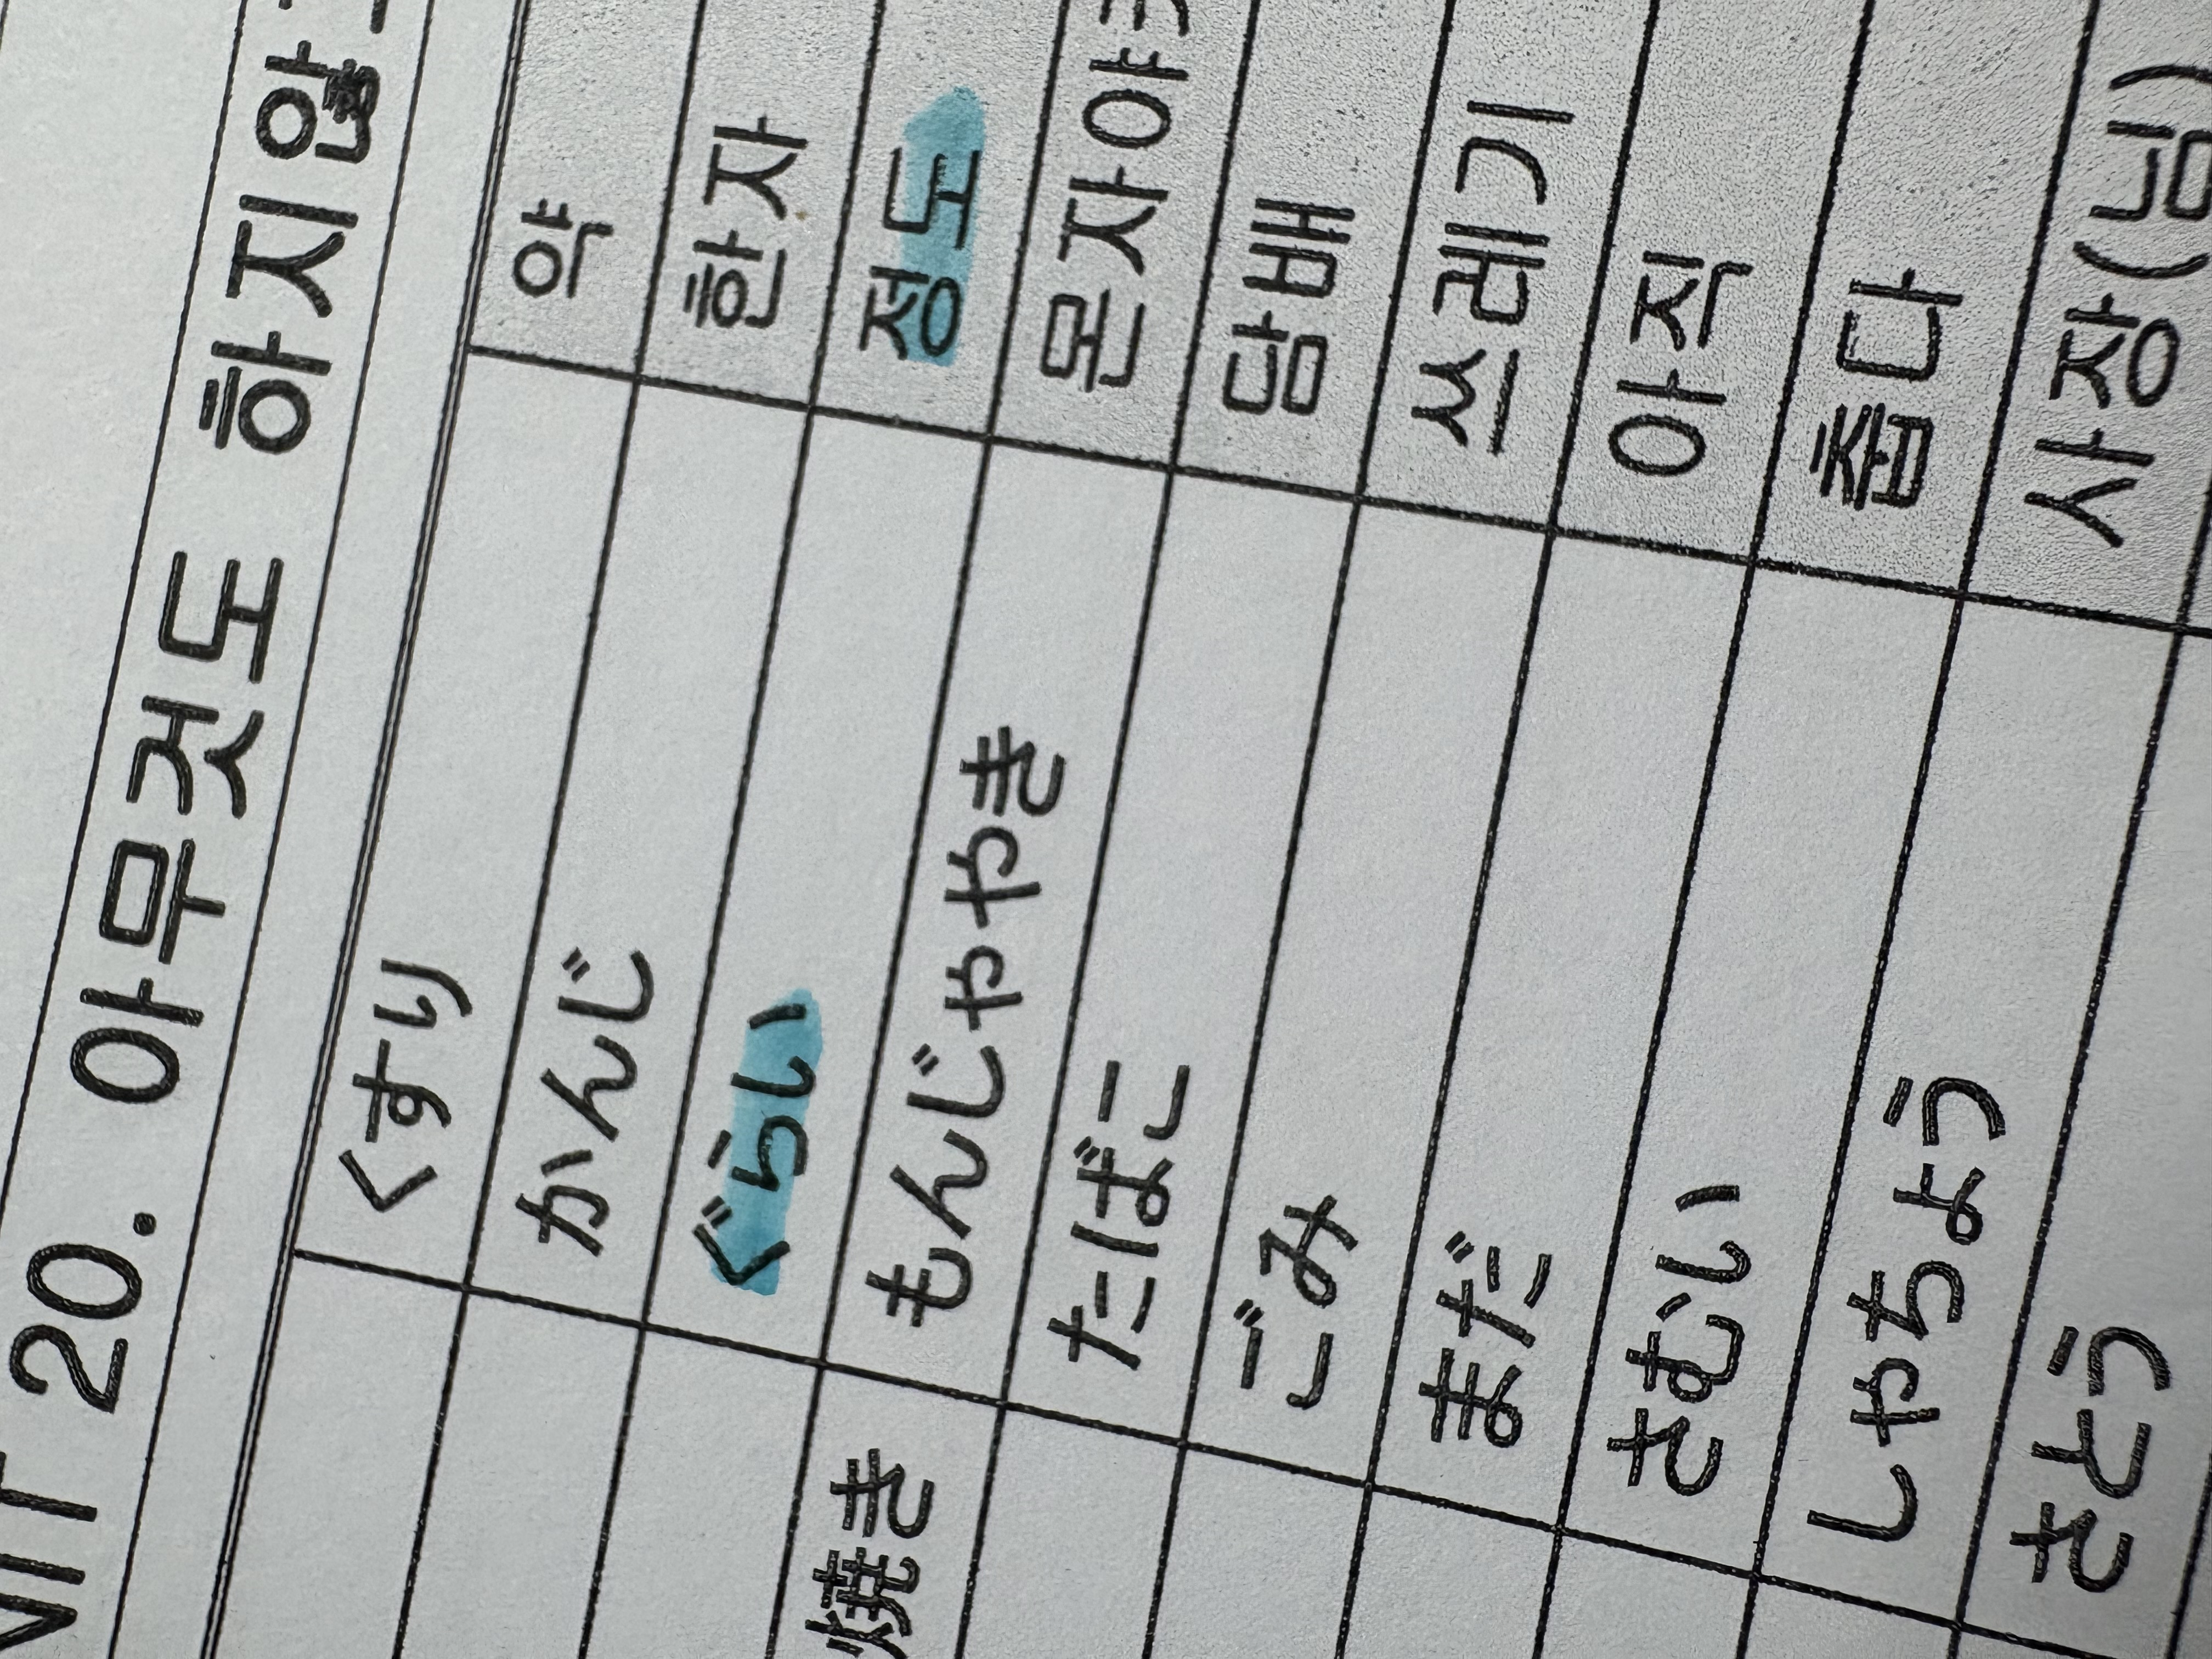 20. 아무것도 하지
くすり 약
かんじ 한자
ぐらい 정도
焼き もんじゃやき 몬자야
たばこ 담배
ごみ 쓰레기
まだ 아직
さむい 춥다
しゃちょう 사장(님)
さとう